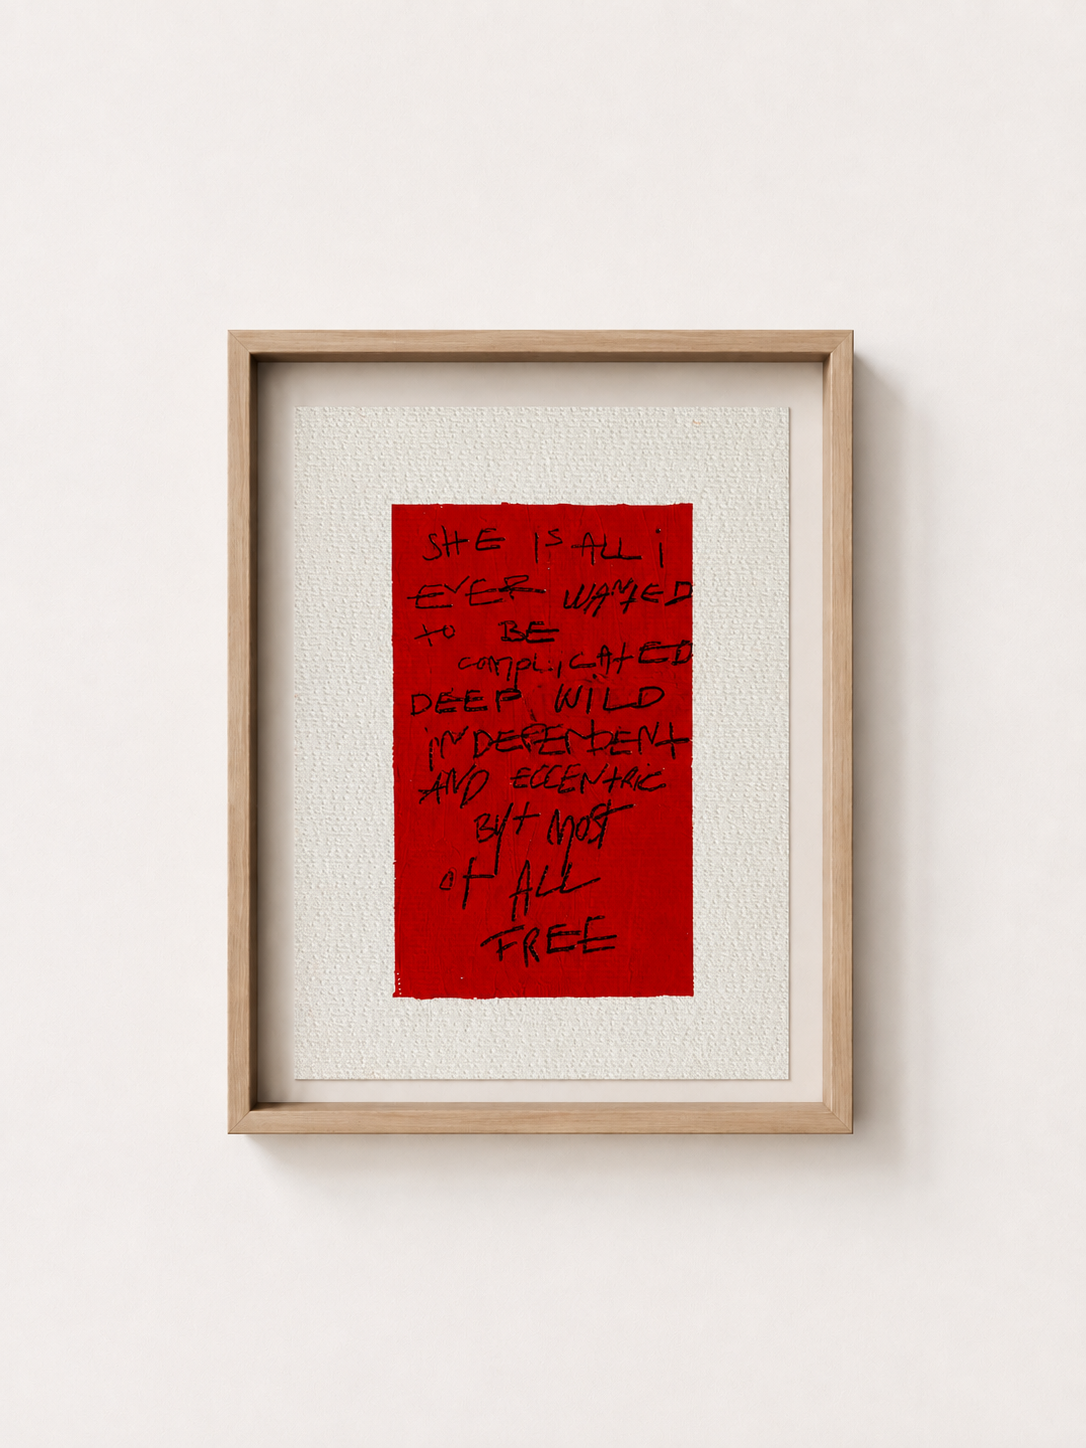 SHE IS ALL i
EVER WANtED
to BE
complicAtED
DEEP WILD
iNDEPENDENt
AND ECCENtRiC
BUt MOSt
of ALL
FREE